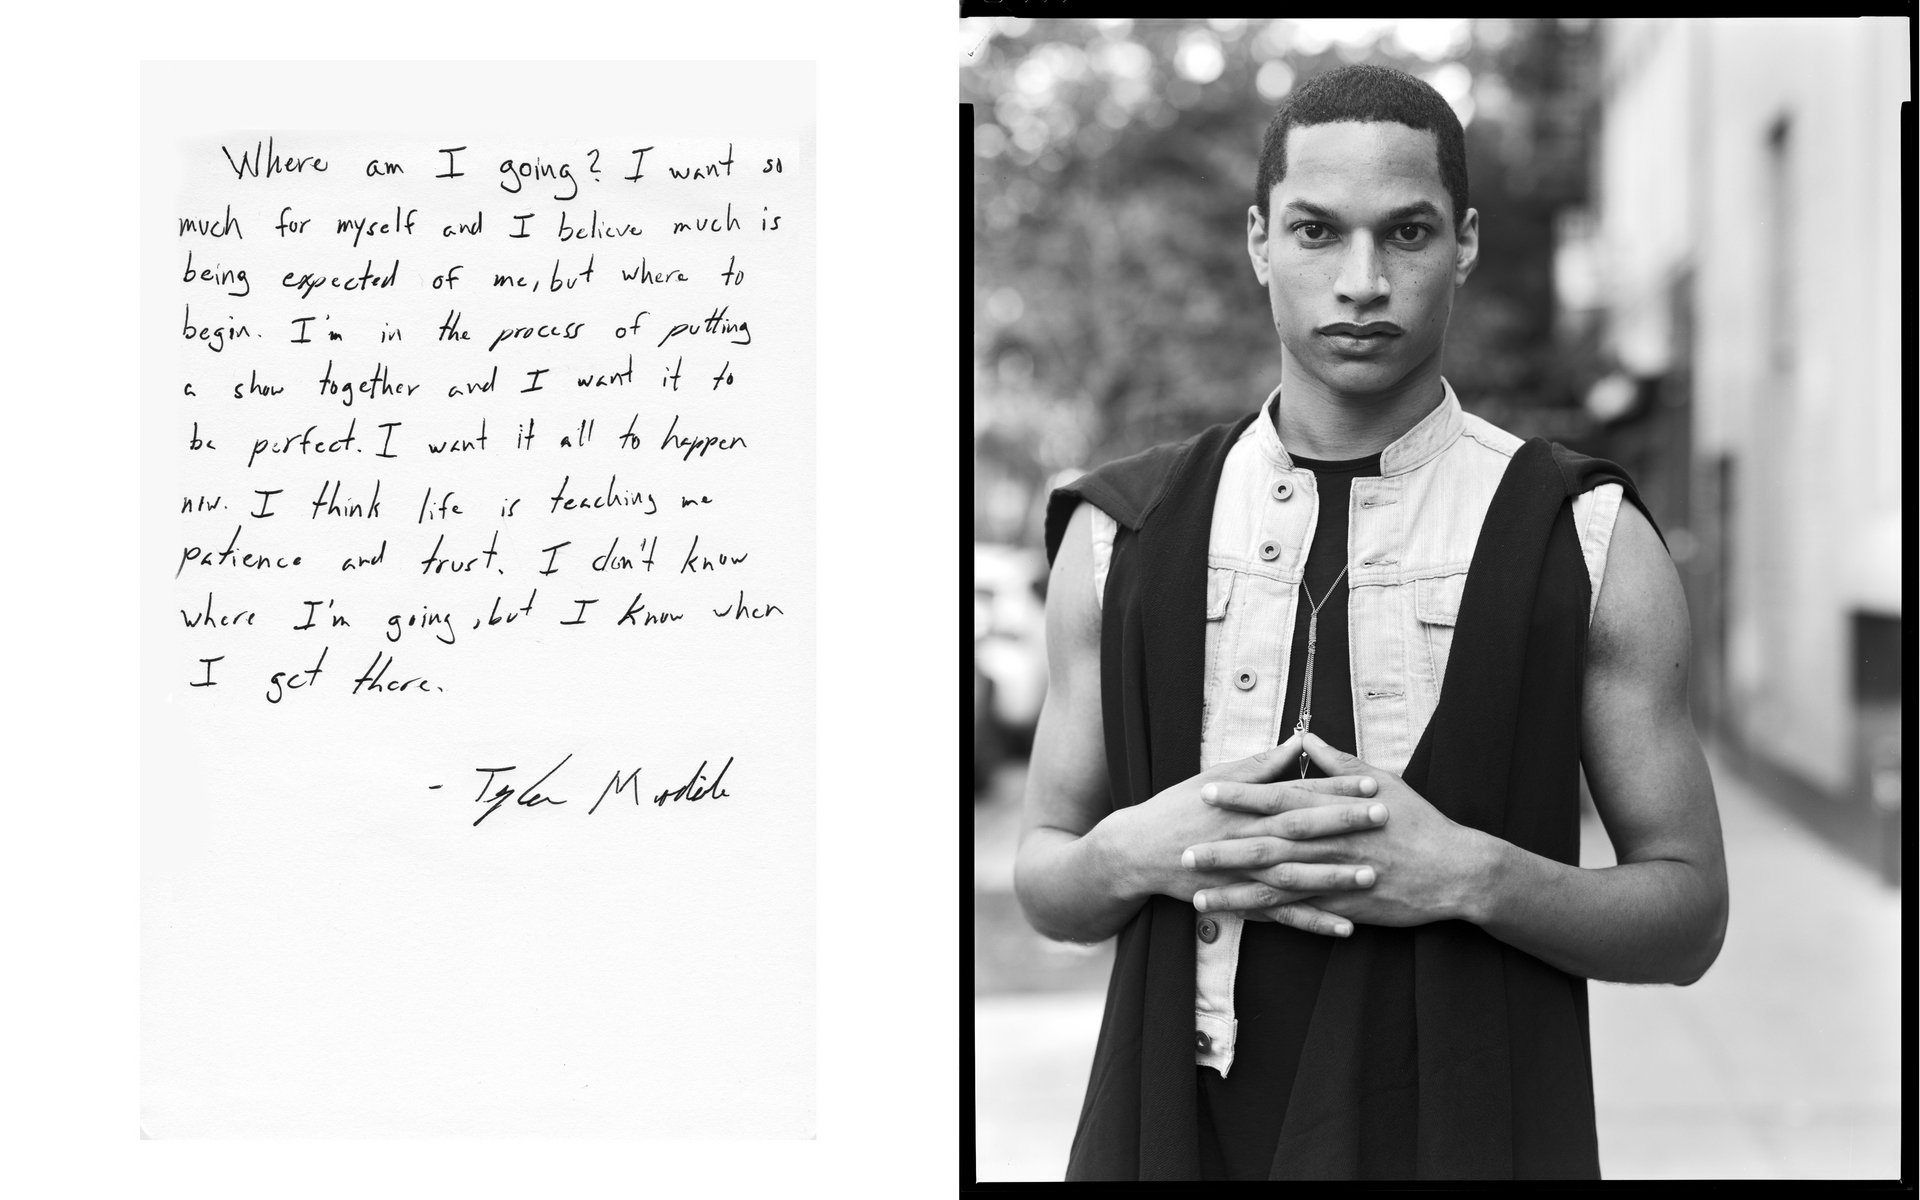 Where am I going? I want so
much for myself and I believe much is
being expected of me, but where to
begin. I'm in the process of putting
a show together and I want it to
be perfect. I want it all to happen
now. I think life is teaching me
patience and trust. I don't know
where I'm going, but I know when
I get there.
- Tyler